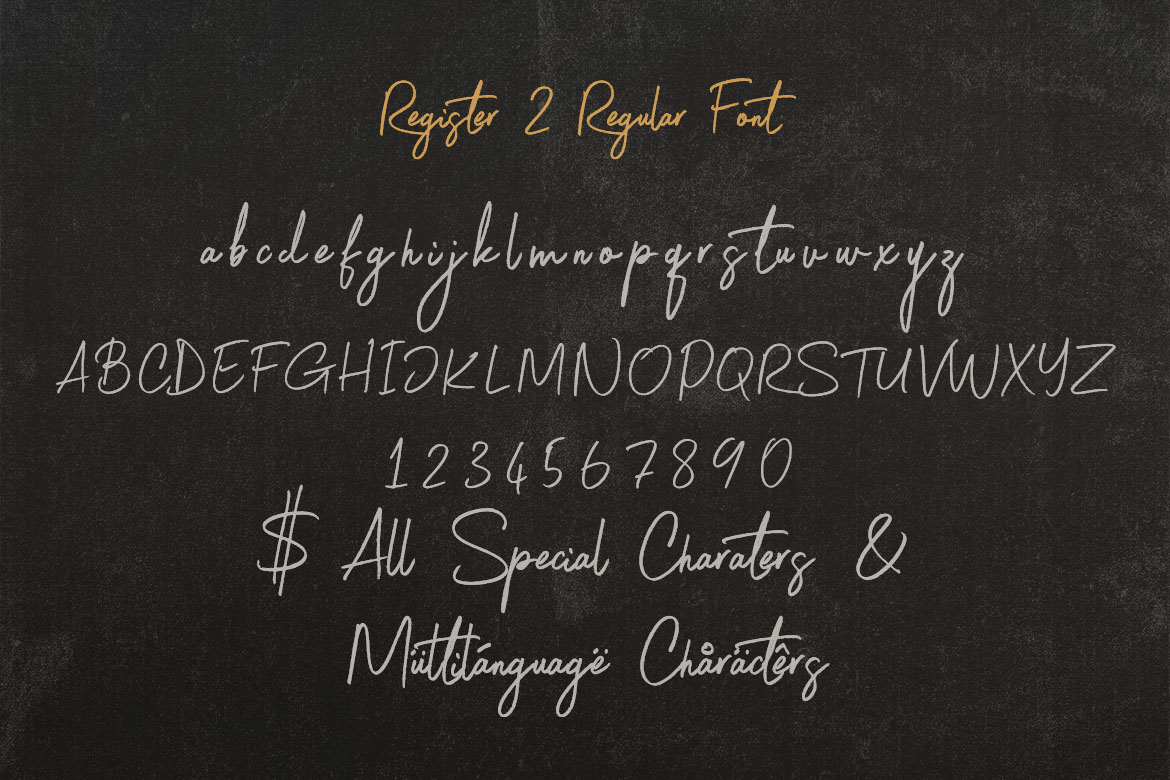 Register 2 Regular Font
abcdefghijklmnopqrstuvwxyz
ABCDEFGHIJKLMNOPQRSTUVWXYZ
1234567890
$ All Special Charaters &
Müttilánguagë Chåräctêrs